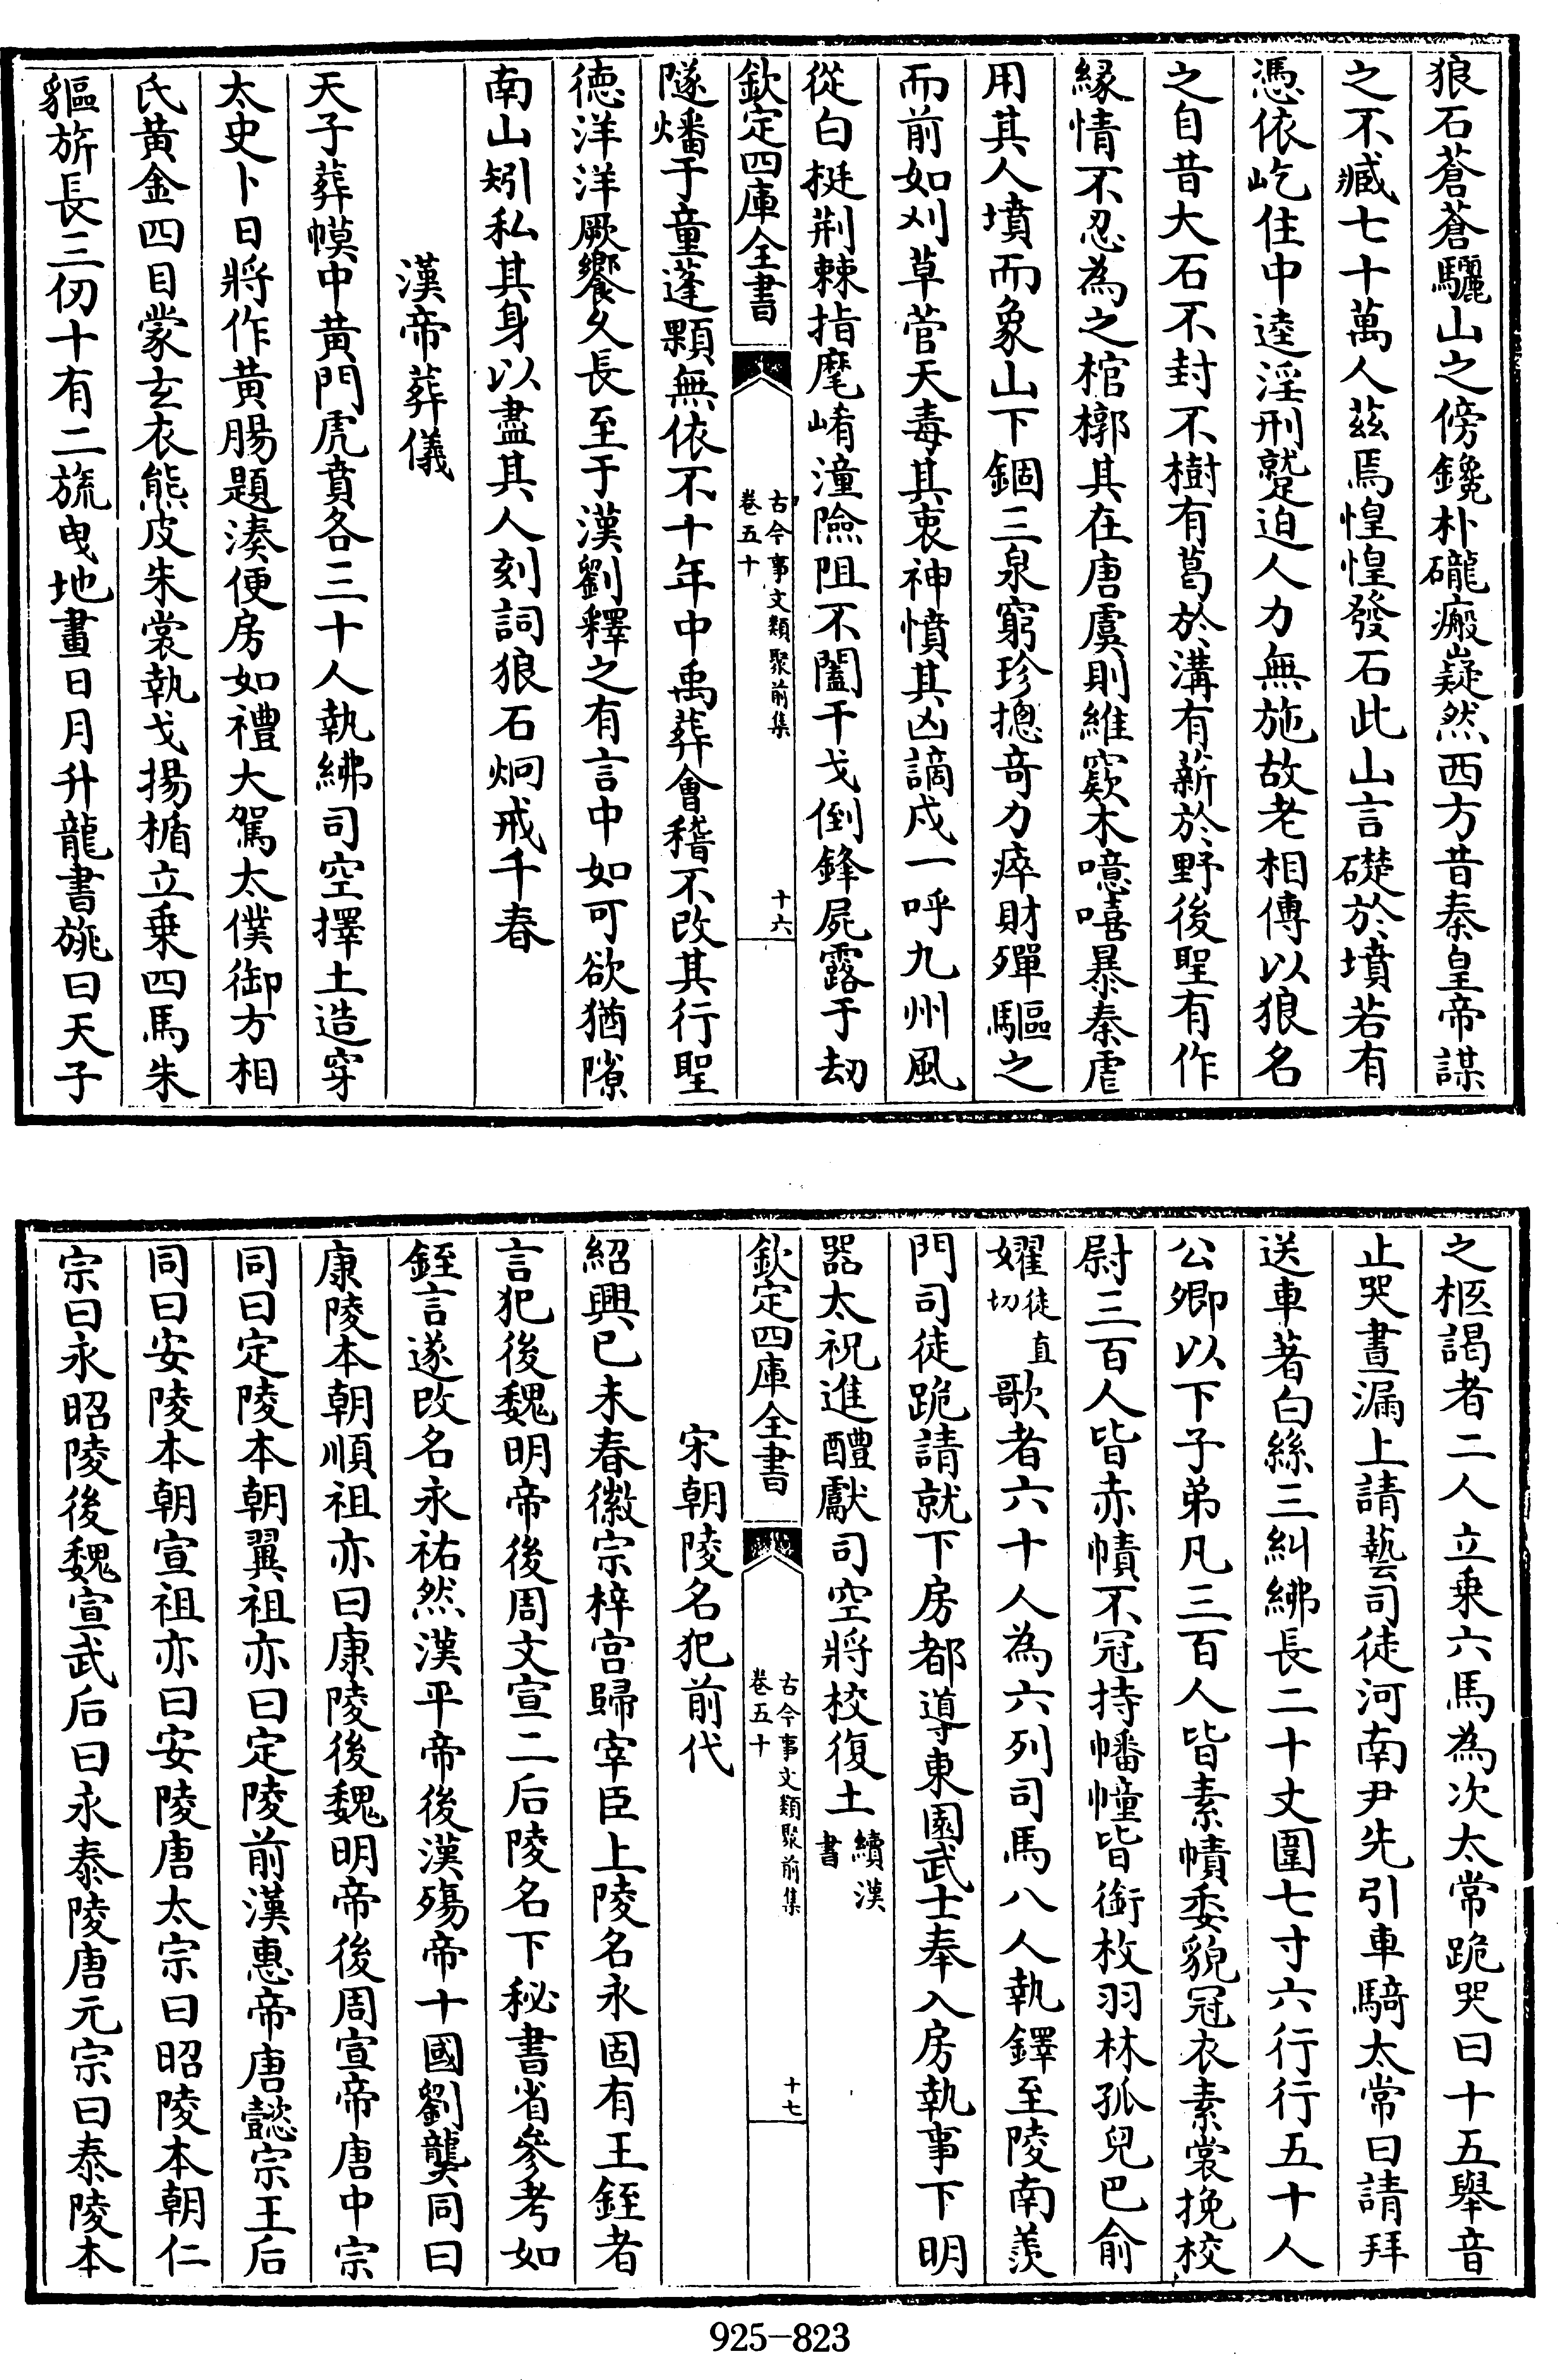 狼石蒼蒼驪山之傍鑱朴礲瘢嶷然西方昔秦皇帝謀
之不臧七十萬人茲焉惶惶發石此山言礎於墳若有
憑依屹住中逵淫刑蹵迫人力無施故老相傳以狼名
之自昔大石不封不樹有葛於溝有薪於野後聖有作
緣情不忍為之棺槨其在唐虞則維窾木噫嘻暴秦虐
用其人墳而象山下錮三泉窮珍摠奇力瘁財殫驅之
而前如刈草菅天毒其衷神憤其凶謫戍一呼九州風
從白挺荆棘指麾崤潼險阻不闔干戈倒鋒屍露于刼
欽定四庫全書
古今事文類聚前集
卷五十
十六
隧燔于童蓬顆無依不十年中禹葬會稽不改其行聖
德洋洋厥饗久長至于漢劉釋之有言中如可欲猶隙
南山矧私其身以盡其人刻詞狼石炯戒千春
漢帝葬儀
天子葬幙中黄門虎賁各三十人執紼司空擇土造穿
太史卜日將作黄腸題湊便房如禮大駕太僕御方相
氏黄金四目蒙玄衣熊皮朱裳執戈揚楯立乗四馬朱
貙旂長三仞十有二旒曳地畫日月升龍書旐曰天子
之柩謁者二人立乗六馬為次太常跪哭曰十五舉音
止哭晝漏上請藝司徒河南尹先引車騎太常曰請拜
送車著白絲三糾紼長二十丈圍七寸六行行五十人
公卿以下子弟凡三百人皆素幘委貌冠衣素裳挽校
尉三百人皆赤幘不冠持幡幢皆銜枚羽林孤兒巴俞
嬥徒直切歌者六十人為六列司馬八人執鐸至陵南羨
門司徒跪請就下房都導東園武士奉入房執事下明
器太祝進醴獻司空將校復土續漢書
欽定四庫全書
古今事文類聚前集
卷五十
十七
宋朝陵名犯前代
紹興已未春徽宗梓宫歸宰臣上陵名永固有王銍者
言犯後魏明帝後周文宣二后陵名下秘書省參考如
銍言遂改名永祐然漢平帝後漢殤帝十國劉龑同曰
康陵本朝順祖亦曰康陵後魏明帝後周宣帝唐中宗
同曰定陵本朝翼祖亦曰定陵前漢惠帝唐懿宗王后
同曰安陵本朝宣祖亦曰安陵唐太宗曰昭陵本朝仁
宗曰永昭陵後魏宣武后曰永泰陵唐元宗曰泰陵本
925-823